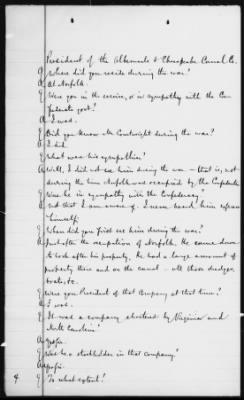 President of the Albemarle & Chesapeake Canal Co.
Q Where did you reside during the war?
A At Norfolk.
Q Were you in the service, or in sympathy with the Con-
federate govt?
A I was.
Q Did you know Mr Courtright during the war?
A I did.
Q What was his sympathies?
A Well, I did not see him during the war — that is, not
during the time Norfolk was occupied by the Confederates
Q Was he in sympathy with the Confederacy?
A Not that I am aware of. I never heard him express
himself.
Q When did you first see him during the war?
A Just after the occupation of Norfolk. He came down
to look after his property. He had a large amount of
property there and on the canal — all those dredges,
boats, &c.
Q Were you President of that Company at that time?
A I was.
Q It was a company chartered by Virginia and
North Carolina?
A Yes sir.
Q Was he a stockholder in that company?
A Yes sir.
Q To what extent?
4